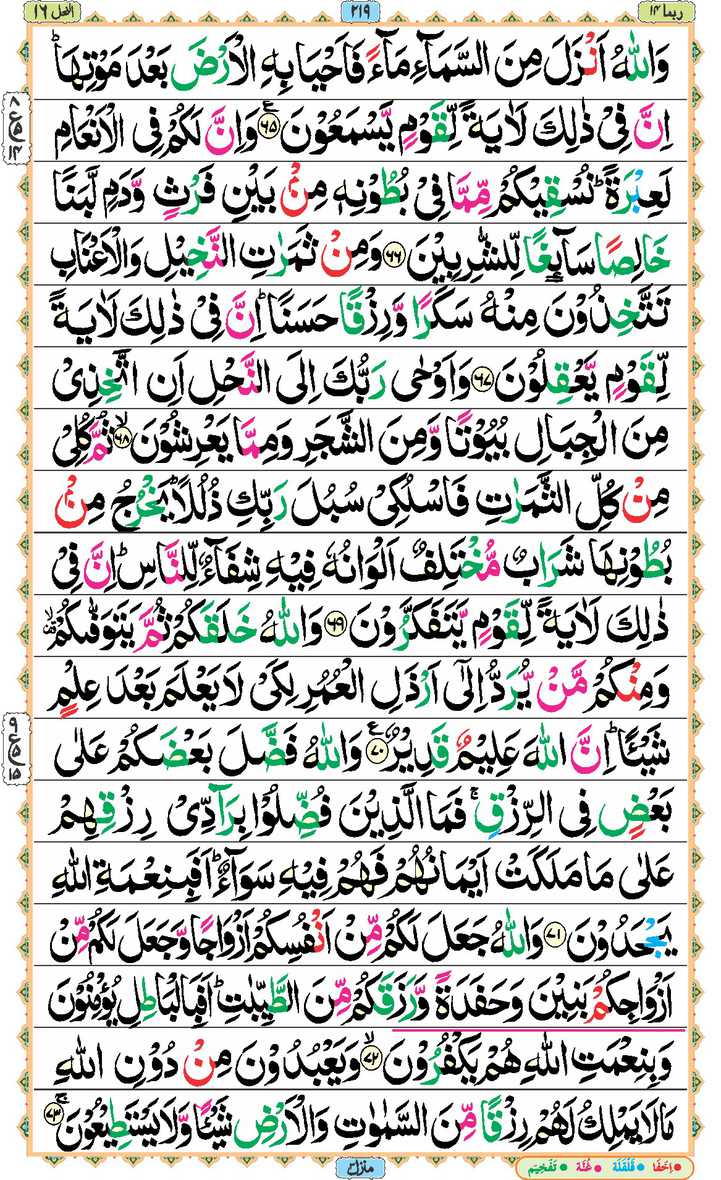 ربما ١٤
٢١٩
النحل ١٦
وَاللّٰهُ اَنْزَلَ مِنَ السَّمَآءِ مَآءً فَاَحْيَا بِهِ الْاَرْضَ بَعْدَ مَوْتِهَاؕ
اِنَّ فِیْ ذٰلِكَ لَاٰیَةً لِّقَوْمٍ یَّسْمَعُوْنَ ﴿٦٥﴾ وَاِنَّ لَكُمْ فِی الْاَنْعَامِ
لَعِبْرَةًؕ نُسْقِیْكُمْ مِّمَّا فِیْ بُطُوْنِهٖ مِنْۢ بَیْنِ فَرْثٍ وَّدَمٍ لَّبَنًا
خَالِصًا سَآىِٕغًا لِّلشّٰرِبِیْنَ ﴿٦٦﴾ وَمِنْ ثَمَرٰتِ النَّخِیْلِ وَالْاَعْنَابِ
تَتَّخِذُوْنَ مِنْهُ سَكَرًا وَّرِزْقًا حَسَنًاؕ اِنَّ فِیْ ذٰلِكَ لَاٰیَةً
لِّقَوْمٍ یَّعْقِلُوْنَ ﴿٦٧﴾ وَاَوْحٰی رَبُّكَ اِلَی النَّحْلِ اَنِ اتَّخِذِیْ
مِنَ الْجِبَالِ بُیُوْتًا وَّمِنَ الشَّجَرِ وَمِمَّا یَعْرِشُوْنَۙ ﴿٦٨﴾ ثُمَّ كُلِیْ
مِنْ كُلِّ الثَّمَرٰتِ فَاسْلُكِیْ سُبُلَ رَبِّكِ ذُلُلًاؕ یَخْرُجُ مِنْۢ
بُطُوْنِهَا شَرَابٌ مُّخْتَلِفٌ اَلْوَانُهٗ فِیْهِ شِفَآءٌ لِّلنَّاسِؕ اِنَّ فِیْ
ذٰلِكَ لَاٰیَةً لِّقَوْمٍ یَّتَفَكَّرُوْنَ ﴿٦٩﴾ وَاللّٰهُ خَلَقَكُمْ ثُمَّ یَتَوَفّٰىكُمْ
وَمِنْكُمْ مَّنْ یُّرَدُّ اِلٰۤی اَرْذَلِ الْعُمُرِ لِكَیْ لَا یَعْلَمَ بَعْدَ عِلْمٍ
شَیْـًٔاؕ اِنَّ اللّٰهَ عَلِیْمٌ قَدِیْرٌ ﴿٧٠﴾ وَاللّٰهُ فَضَّلَ بَعْضَكُمْ عَلٰی
بَعْضٍ فِی الرِّزْقِۚ فَمَا الَّذِیْنَ فُضِّلُوْا بِرَآدِّیْ رِزْقِهِمْ
عَلٰی مَا مَلَكَتْ اَیْمَانُهُمْ فَهُمْ فِیْهِ سَوَآءٌؕ اَفَبِنِعْمَةِ اللّٰهِ
یَجْحَدُوْنَ ﴿٧١﴾ وَاللّٰهُ جَعَلَ لَكُمْ مِّنْ اَنْفُسِكُمْ اَزْوَاجًا وَّجَعَلَ لَكُمْ مِّنْ
اَزْوَاجِكُمْ بَنِیْنَ وَحَفَدَةً وَّرَزَقَكُمْ مِّنَ الطَّیِّبٰتِؕ اَفَبِالْبَاطِلِ یُؤْمِنُوْنَ
وَبِنِعْمَتِ اللّٰهِ هُمْ یَكْفُرُوْنَۙ ﴿٧٢﴾ وَیَعْبُدُوْنَ مِنْ دُوْنِ اللّٰهِ
مَا لَا یَمْلِكُ لَهُمْ رِزْقًا مِّنَ السَّمٰوٰتِ وَالْاَرْضِ شَیْـًٔا وَّلَا یَسْتَطِیْعُوْنَۚ ﴿٧٣﴾
منزل ٣
اِخفَا • قَلْقَلَة • غُنَّة • تَفْخِیْم •